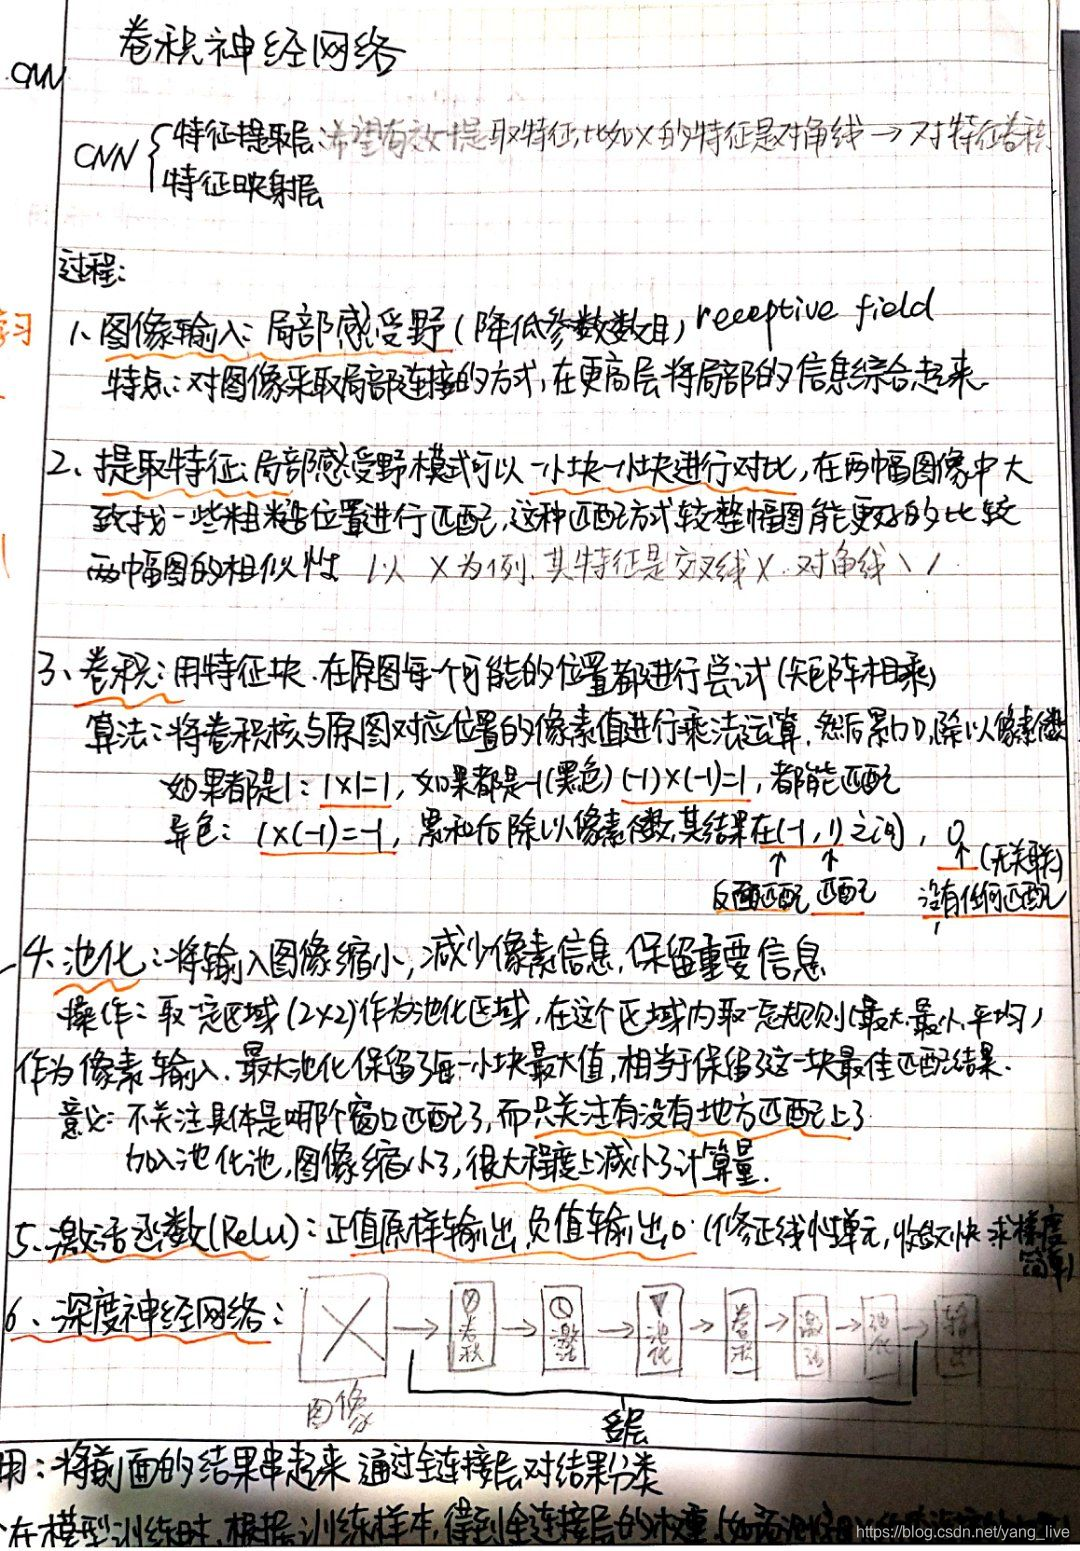 卷积神经网络
CNN
CNN { 特征提取层:希望有效提取特征,比如X的特征是对角线→对特征卷积
特征映射层
过程:
习
1、图像输入:局部感受野(降低参数数目) receptive field
特点:对图像采取局部连接的方式,在更高层将局部的信息综合起来.
2、提取特征:局部感受野模式可以一小块一小块进行对比,在两幅图像中大
致找一些粗糙位置进行匹配,这种匹配方式较整幅图能更好的比较
两幅图的相似性 以X为例,其特征是交叉线X.对角线\ /
3、卷积:用特征块.在原图每个可能的位置都进行尝试(矩阵相乘)
算法:将卷积核与原图对应位置的像素值进行乘法运算,然后累加,除以像素个数
如果都是1:1×1=1,如果都是-1(黑色)(-1)×(-1)=1,都能匹配
异色:1×(-1)=-1,累和后除以像素个数,其结果在(-1,1)之间,0
↑ ↑ ↑(无关联)
反面匹配 匹配 没有任何匹配
4.池化:将输入图像缩小,减少像素信息,保留重要信息
操作:取一定区域(2×2)作为池化区域,在这个区域内取一定规则(最大.最小.平均)
作为像素输入.最大池化保留了每一小块最大值,相当于保留了这一块最佳匹配结果.
意义:不关注具体是哪个窗口匹配了,而只关注有没有地方匹配上了
加入池化池,图像缩小了,很大程度上减小了计算量.
5、激活函数(Relu):正值原样输出,负值输出0.(修正线性单元,收敛快 求梯度
简单)
6、深度神经网络:
→ 卷积 → 激活 → 池化 → 卷积 → 激活 → 池化 → 输出
图像
多层
用:将前面的结果串起来 通过全连接层对结果分类
在模型训练时,根据训练样本,得到全连接层的权重
https://blog.csdn.net/yang_live